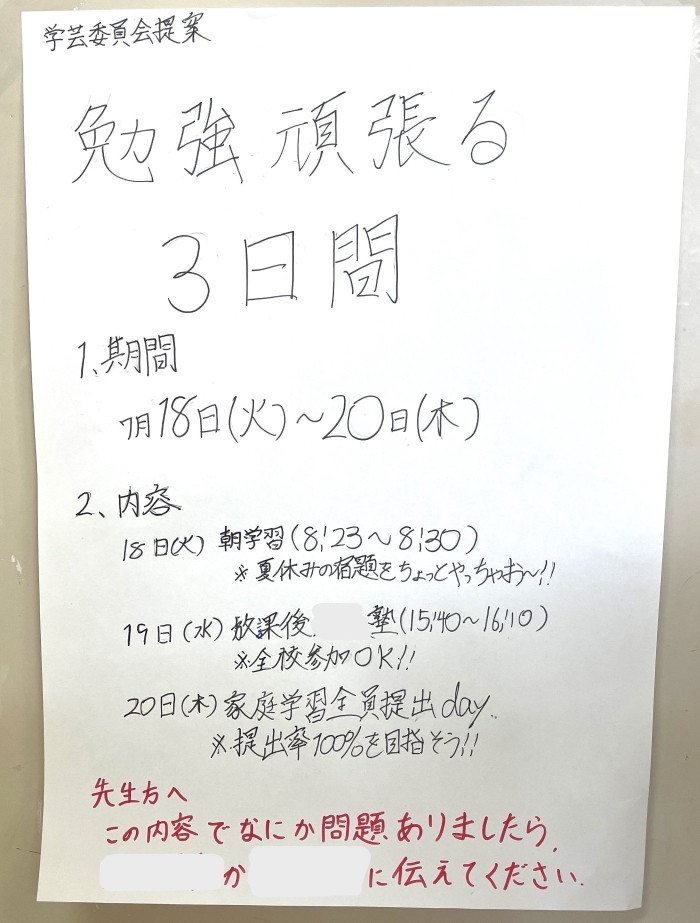 学芸委員会提案
勉強頑張る
3日間
1、期間
7月18日(火)～20日(木)
2、内容
18日(火) 朝学習(8:23～8:30)
※夏休みの宿題をちょっとやっちゃお～!!
19日(水) 放課後 塾(15:40～16:10)
※全校参加OK!!
20日(木) 家庭学習全員提出day.
※提出率100%を目指そう!!
先生方へ
この内容でなにか問題ありましたら,
か に伝えてください.